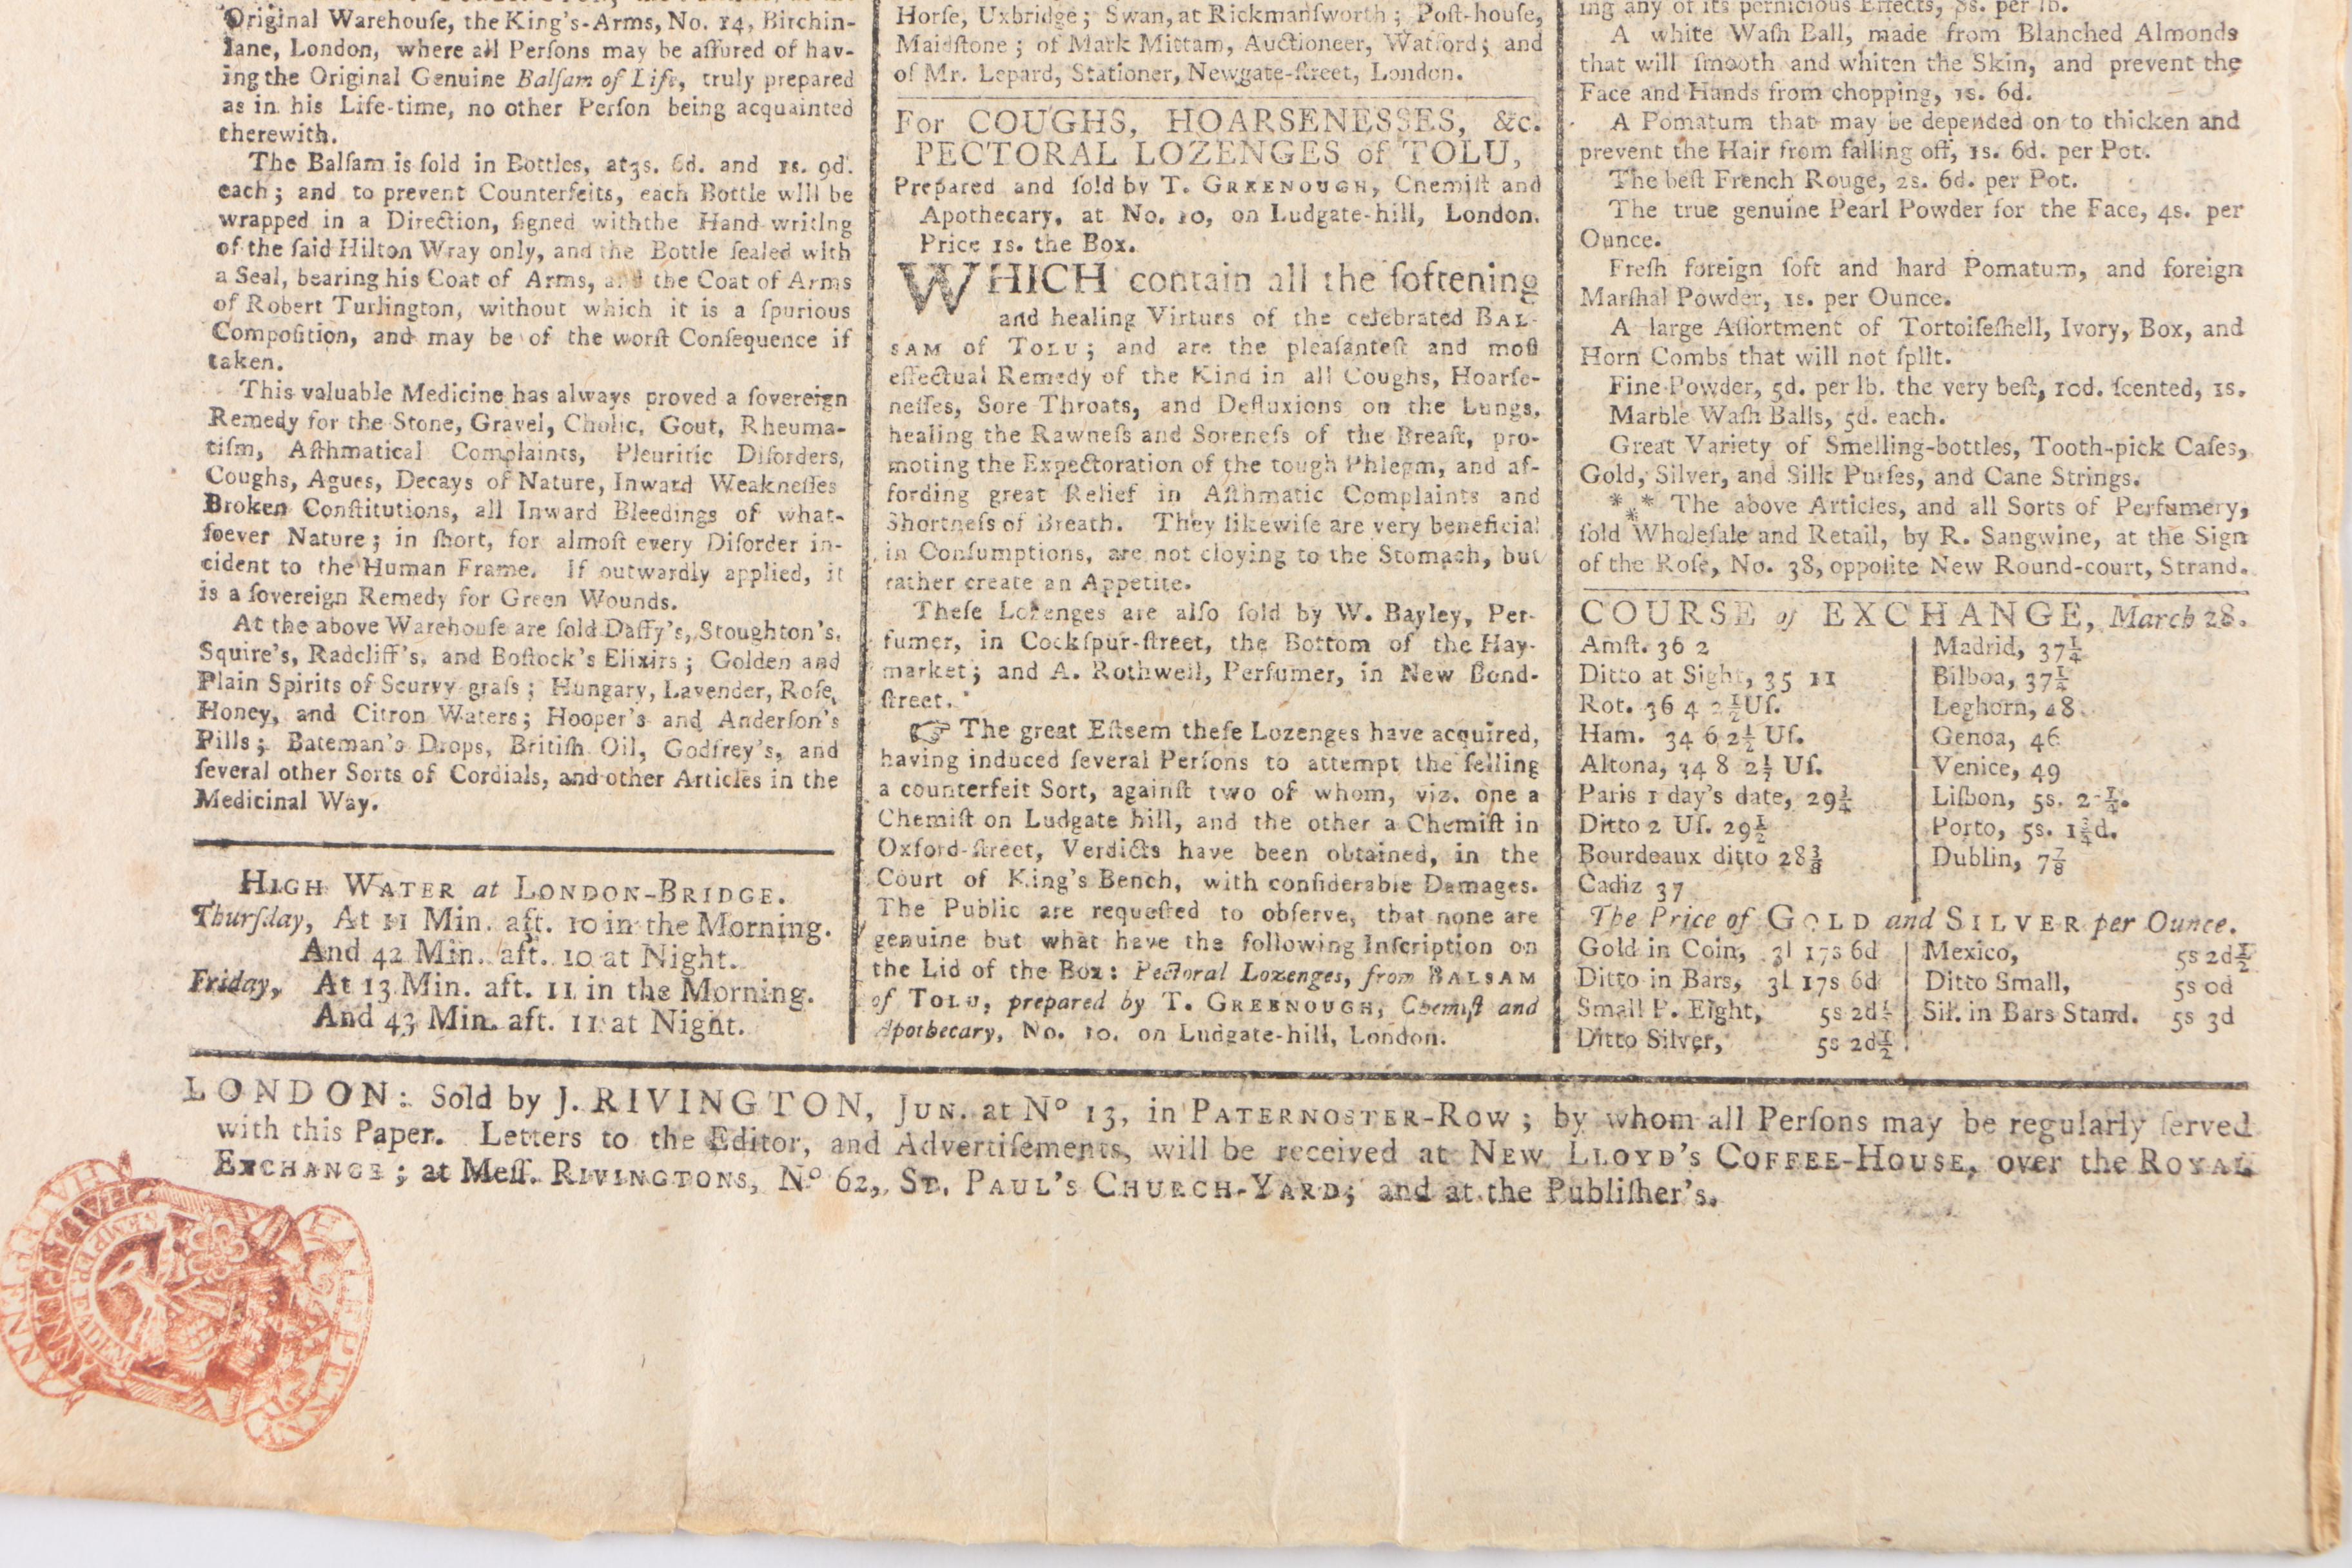 Original Warehouſe, the King's-Arms, No. 14, Birchin-
lane, London, where all Perſons may be aſſured of hav-
ing the Original Genuine Balſam of Life, truly prepared
as in his Life-time, no other Perſon being acquainted
therewith.
The Balſam is ſold in Bottles, at 3s. 6d. and 1s. 9d.
each; and to prevent Counterfeits, each Bottle will be
wrapped in a Direction, ſigned withthe Hand-writing
of the ſaid Hilton Wray only, and the Bottle ſealed with
a Seal, bearing his Coat of Arms, and the Coat of Arms
of Robert Turlington, without which it is a ſpurious
Compoſition, and may be of the worſt Conſequence if
taken.
This valuable Medicine has always proved a ſovereign
Remedy for the Stone, Gravel, Cholic, Gout, Rheuma-
tiſm, Aſthmatical Complaints, Pleuritic Diſorders,
Coughs, Agues, Decays of Nature, Inward Weakneſſes
Broken Conſtitutions, all Inward Bleedings of what-
ſoever Nature; in ſhort, for almoſt every Diſorder in-
cident to the Human Frame. If outwardly applied, it
is a ſovereign Remedy for Green Wounds.
At the above Warehouſe are ſold Daffy's, Stoughton's,
Squire's, Radcliff's, and Boſtock's Elixirs; Golden and
Plain Spirits of Scurvy-graſs; Hungary, Lavender, Roſe,
Honey, and Citron Waters; Hooper's and Anderſon's
Pills; Bateman's Drops, Britiſh Oil, Godfrey's, and
ſeveral other Sorts of Cordials, and other Articles in the
Medicinal Way.
HIGH WATER at LONDON-BRIDGE.
Thurſday, At 11 Min. aft. 10 in the Morning.
And 42 Min. aft. 10 at Night.
Friday, At 13 Min. aft. 11 in the Morning.
And 43 Min. aft. 11 at Night.
Horſe, Uxbridge; Swan, at Rickmanſworth; Poſt-houſe,
Maidſtone; of Mark Mittam, Auctioneer, Watford; and
of Mr. Lepard, Stationer, Newgate-ſtreet, London.
For COUGHS, HOARSENESSES, &c.
PECTORAL LOZENGES of TOLU,
Prepared and ſold by T. GREENOUGH, Chemiſt and
Apothecary, at No. 10, on Ludgate-hill, London.
Price 1s. the Box.
WHICH contain all the ſoftening
and healing Virtues of the celebrated BAL-
SAM of TOLU; and are the pleaſanteſt and moſt
effectual Remedy of the Kind in all Coughs, Hoarſe-
neſſes, Sore Throats, and Defluxions on the Lungs,
healing the Rawneſs and Soreneſs of the Breaſt, pro-
moting the Expectoration of the tough Phlegm, and af-
fording great Relief in Aſthmatic Complaints and
Shortneſs of Breath. They likewiſe are very beneficial
in Conſumptions, are not cloying to the Stomach, but
rather create an Appetite.
Theſe Lozenges are alſo ſold by W. Bayley, Per-
fumer, in Cockſpur-ſtreet, the Bottom of the Hay-
market; and A. Rothwell, Perfumer, in New Bond-
ſtreet.
☞ The great Eſteem theſe Lozenges have acquired,
having induced ſeveral Perſons to attempt the ſelling
a counterfeit Sort, againſt two of whom, viz. one a
Chemiſt on Ludgate hill, and the other a Chemiſt in
Oxford-ſtreet, Verdicts have been obtained, in the
Court of King's Bench, with conſiderable Damages.
The Public are requeſted to obſerve, that none are
genuine but what have the following Inſcription on
the Lid of the Box: Pectoral Lozenges, from BALSAM
of TOLU, prepared by T. GREENOUGH, Chemiſt and
Apothecary, No. 10. on Ludgate-hill, London.
ing any of its pernicious Effects, 8s. per lb.
A white Waſh Ball, made from Blanched Almonds
that will ſmooth and whiten the Skin, and prevent the
Face and Hands from chopping, 1s. 6d.
A Pomatum that may be depended on to thicken and
prevent the Hair from falling off, 1s. 6d. per Pot.
The beſt French Rouge, 2s. 6d. per Pot.
The true genuine Pearl Powder for the Face, 4s. per
Ounce.
Freſh foreign ſoft and hard Pomatum, and foreign
Marſhal Powder, 1s. per Ounce.
A large Aſſortment of Tortoiſeſhell, Ivory, Box, and
Horn Combs that will not ſplit.
Fine Powder, 5d. per lb. the very beſt, 10d. ſcented, 1s.
Marble Waſh Balls, 5d. each.
Great Variety of Smelling-bottles, Tooth-pick Caſes,
Gold, Silver, and Silk Purſes, and Cane Strings.
*** The above Articles, and all Sorts of Perfumery,
ſold Wholeſale and Retail, by R. Sangwine, at the Sign
of the Roſe, No. 38, oppoſite New Round-court, Strand.
COURSE of EXCHANGE, March 28.
Amſt. 36 2
Ditto at Sight, 35 11
Rot. 36 4 2½ Uſ.
Ham. 34 6 2½ Uſ.
Altona, 34 8 2½ Uſ.
Paris 1 day's date, 29¾
Ditto 2 Uſ. 29½
Bourdeaux ditto 28⅜
Cadiz 37
Madrid, 37¼
Bilboa, 37¼
Leghorn, 48
Genoa, 46
Venice, 49
Liſbon, 5s. 2 ¼.
Porto, 5s. 1¾d.
Dublin, 7⅞
The Price of GOLD and SILVER per Ounce.
Gold in Coin, 3l 17s 6d
Ditto in Bars, 3l 17s 6d
Small P. Eight, 5s 2d½
Ditto Silver, 5s 2d½
Mexico, 5s 2d½
Ditto Small, 5s 0d
Sil. in Bars Stand. 5s 3d
LONDON: Sold by J. RIVINGTON, JUN. at Nº 13, in PATERNOSTER-ROW; by whom all Perſons may be regularly ſerved
with this Paper. Letters to the Editor, and Advertiſements, will be received at NEW LLOYD'S COFFEE-HOUSE, over the ROYAL
EXCHANGE; at Meſſ. RIVINGTONS, Nº 62, ST. PAUL'S CHURCH-YARD; and at the Publiſher's.